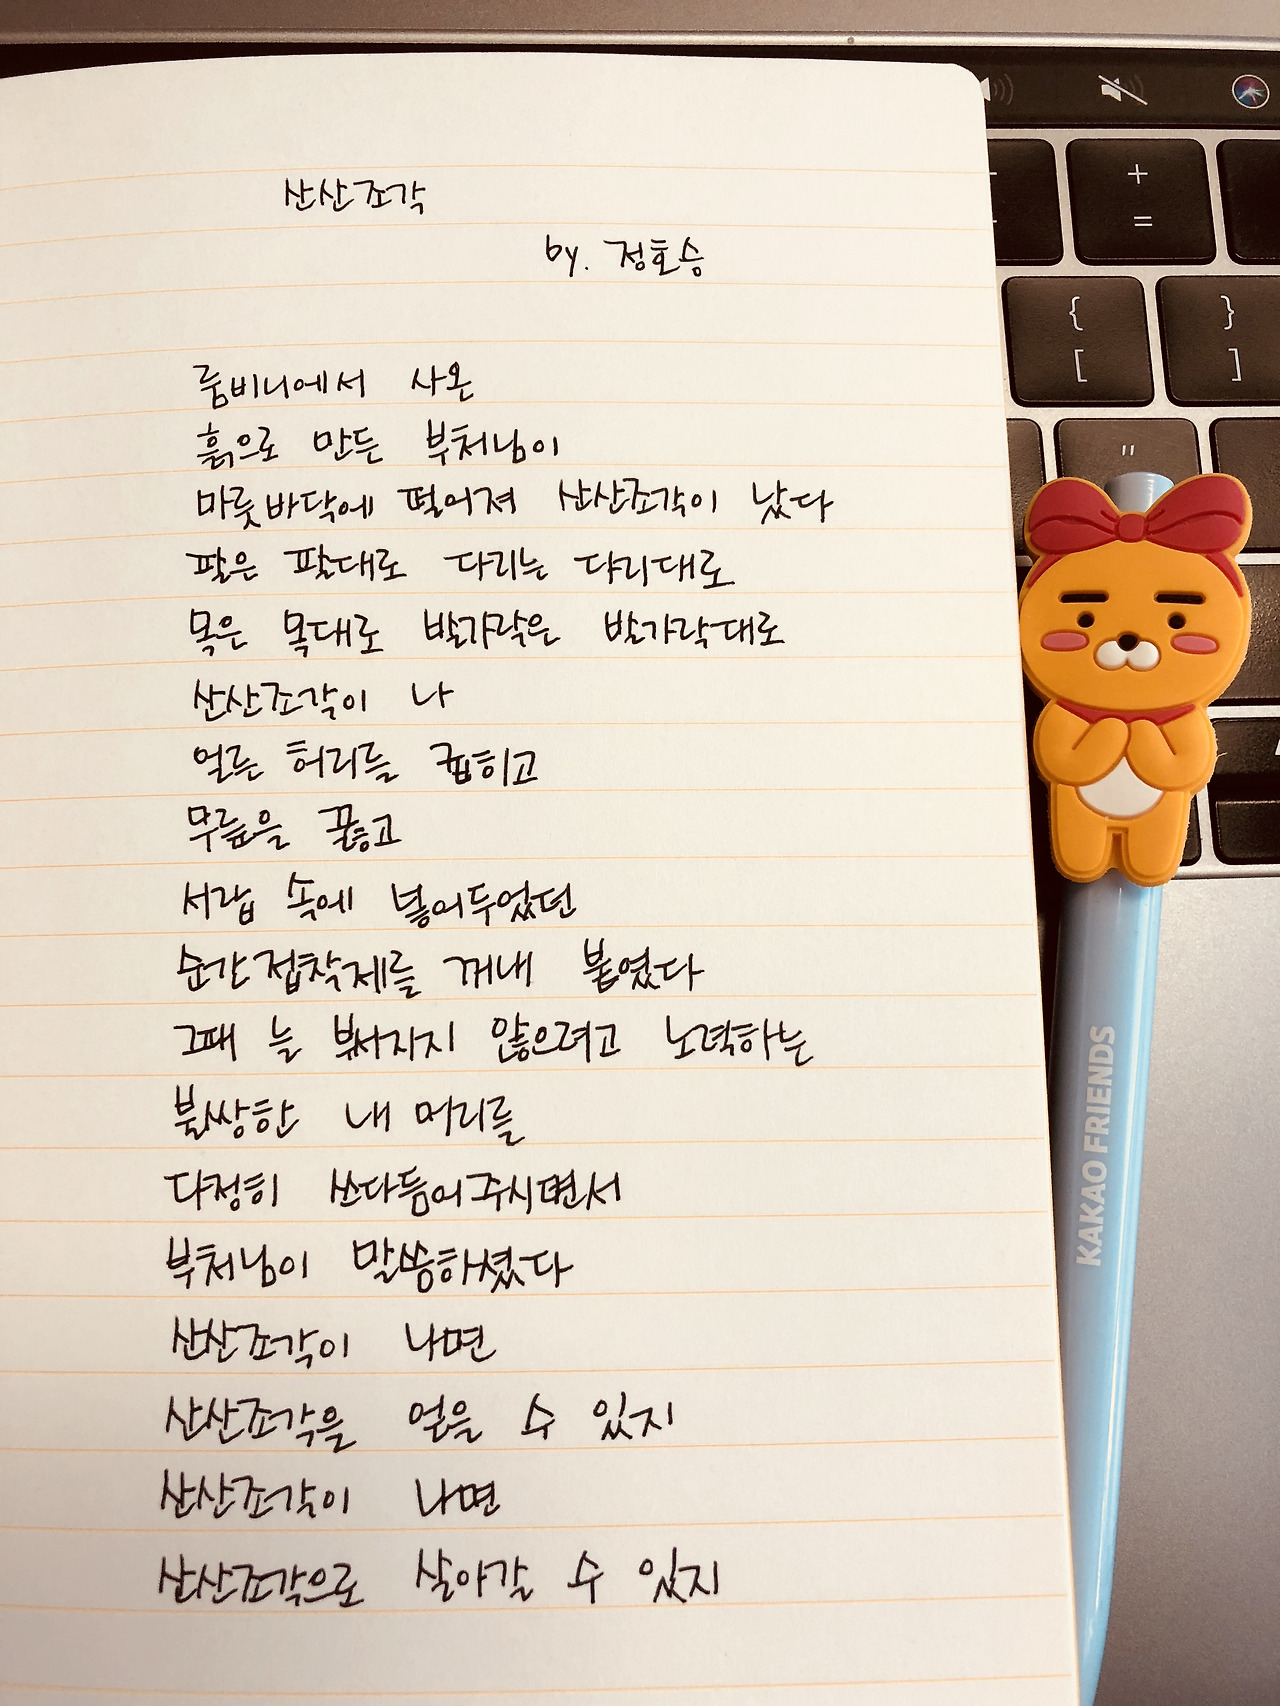 산산조각
by. 정호승
룸비니에서 사온
흙으로 만든 부처님이
마룻바닥에 떨어져 산산조각이 났다
팔은 팔대로 다리는 다리대로
목은 목대로 발가락은 발가락대로
산산조각이 나
얼른 허리를 굽히고
무릎을 꿇고
서랍 속에 넣어두었던
순간접착제를 꺼내 붙였다
그때 늘 부서지지 않으려고 노력하는
불쌍한 내 머리를
다정히 쓰다듬어주시면서
부처님이 말씀하셨다
산산조각이 나면
산산조각을 얻을 수 있지
산산조각이 나면
산산조각으로 살아갈 수 있지
+
=
{
[
}
]
"
KAKAO FRIENDS